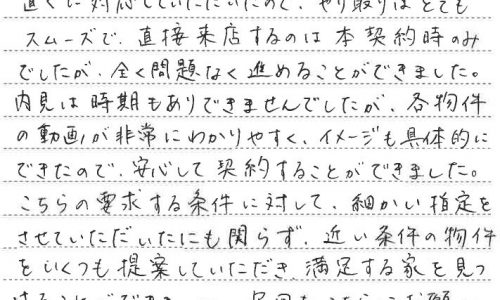 直ぐに対応していただいたので、やり取りはとても
スムーズで、直接来店するのは本契約時のみ
でしたが、全く問題なく進めることができました。
内見は時期もありできませんでしたが、各物件
の動画が非常にわかりやすく、イメージも具体的に
できたので、安心して契約することができました。
こちらの要求する条件に対して、細かい指定を
させていただいたにも関らず、近い条件の物件
をいくつも提案していただき、満足する家を見つ